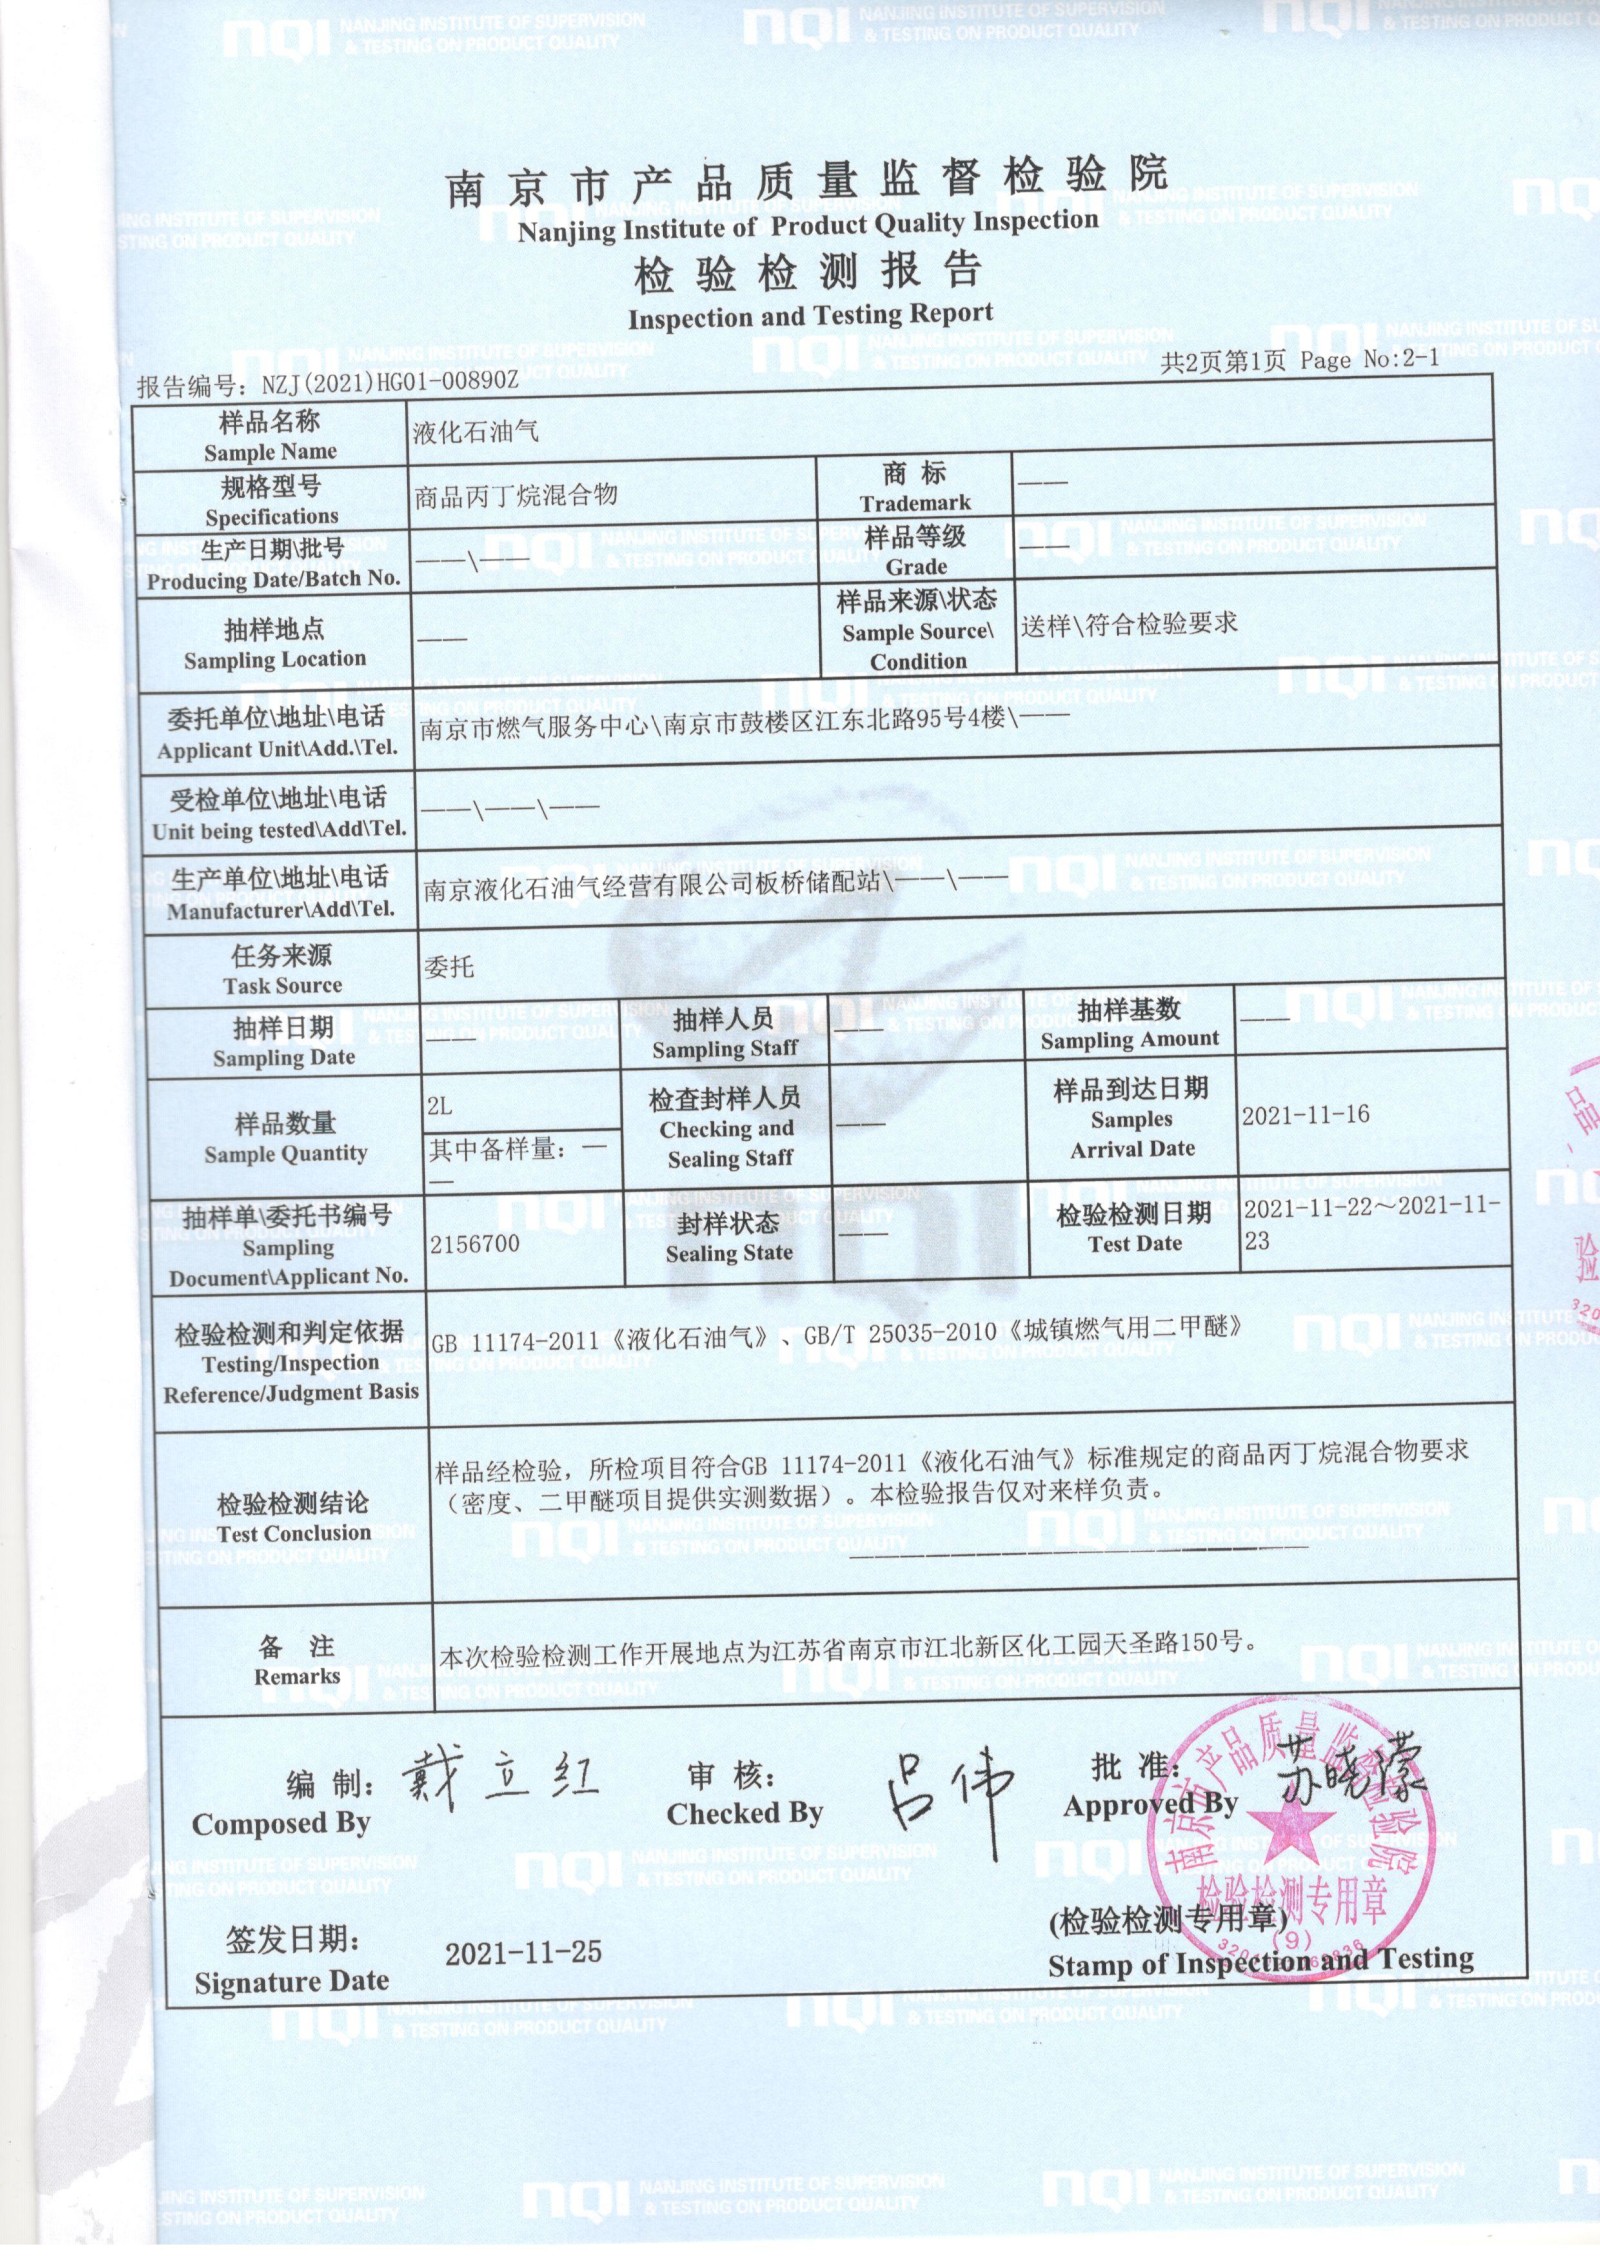 南京市产品质量监督检验院
Nanjing Institute of Product Quality Inspection
检验检测报告
Inspection and Testing Report
报告编号: NZJ(2021)HG01-00890Z
共2页第1页 Page No:2-1
样品名称
Sample Name
液化石油气
规格型号
Specifications
商品丙丁烷混合物
商 标
Trademark
——
生产日期\批号
Producing Date/Batch No.
——\——
样品等级
Grade
——
抽样地点
Sampling Location
——
样品来源\状态
Sample Source\
Condition
送样\符合检验要求
委托单位\地址\电话
Applicant Unit\Add.\Tel.
南京市燃气服务中心\南京市鼓楼区江东北路95号4楼\——
受检单位\地址\电话
Unit being tested\Add\Tel.
——\——\——
生产单位\地址\电话
Manufacturer\Add\Tel.
南京液化石油气经营有限公司板桥储配站\——\——
任务来源
Task Source
委托
抽样日期
Sampling Date
——
抽样人员
Sampling Staff
——
抽样基数
Sampling Amount
——
样品数量
Sample Quantity
2L
其中备样量: —
—
检查封样人员
Checking and
Sealing Staff
——
样品到达日期
Samples
Arrival Date
2021-11-16
抽样单\委托书编号
Sampling
Document\Applicant No.
2156700
封样状态
Sealing State
——
检验检测日期
Test Date
2021-11-22～2021-11-
23
检验检测和判定依据
Testing/Inspection
Reference/Judgment Basis
GB 11174-2011《液化石油气》、GB/T 25035-2010《城镇燃气用二甲醚》
检验检测结论
Test Conclusion
样品经检验，所检项目符合GB 11174-2011《液化石油气》标准规定的商品丙丁烷混合物要求
（密度、二甲醚项目提供实测数据）。本检验报告仅对来样负责。
备 注
Remarks
本次检验检测工作开展地点为江苏省南京市江北新区化工园天圣路150号。
编 制:
Composed By
戴立红
审 核:
Checked By
吕伟
批 准:
Approved By
苏晓濛
南京市产品质量监督检验院
检验检测专用章
(9)
签发日期:
Signature Date
2021-11-25
(检验检测专用章)
Stamp of Inspection and Testing
nqi NANJING INSTITUTE OF SUPERVISION
& TESTING ON PRODUCT QUALITY